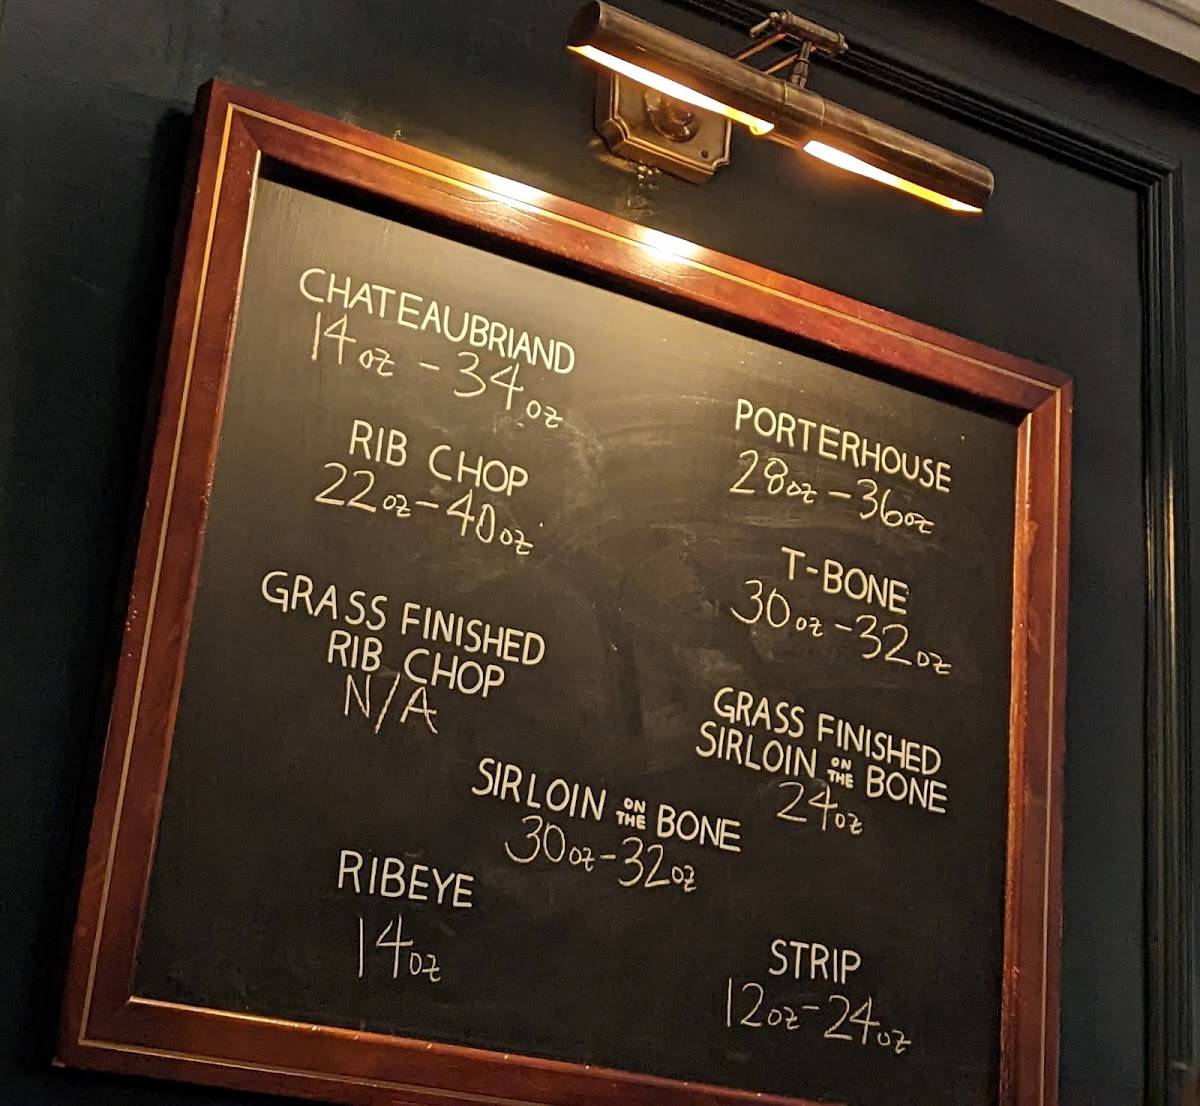 CHATEAUBRIAND
14oz - 34oz
RIB CHOP
22oz - 40oz
GRASS FINISHED
RIB CHOP
N/A
SIRLOIN ON THE BONE
30oz - 32oz
RIBEYE
14oz
PORTERHOUSE
28oz - 36oz
T-BONE
30oz - 32oz
GRASS FINISHED
SIRLOIN ON THE BONE
24oz
STRIP
12oz - 24oz